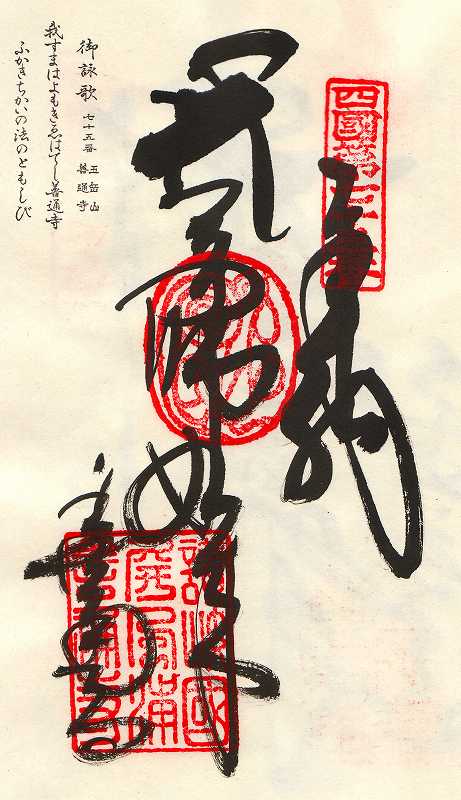 四國第七十五番
奉納
薬師如来
善通寺
讃岐國
屏風浦
善通寺
御詠歌 七十五番 五岳山 善通寺
我すまはよもきゑはてし善通寺
ふかきちかいの法のともしび